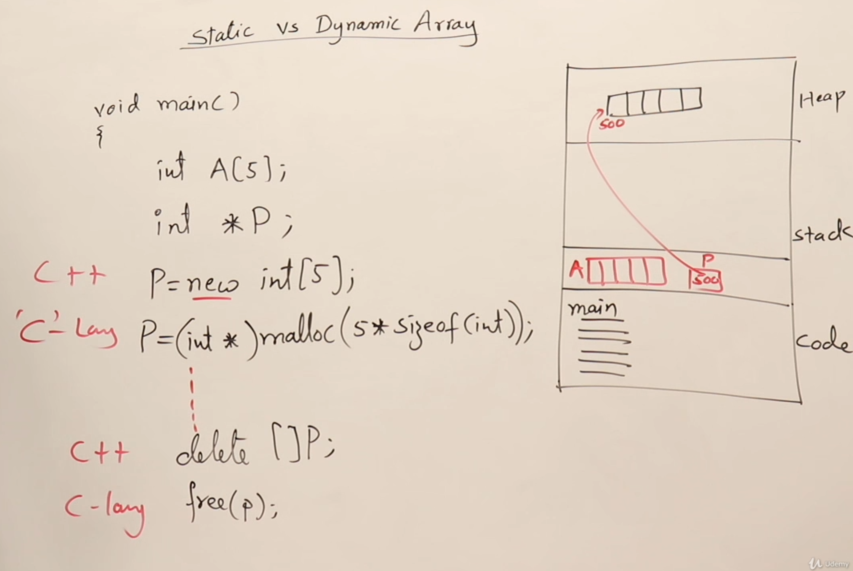 Static vs Dynamic Array
void main()
{
int A[5];
int *P;
C++ P=new int[5];
'C'-Lang P=(int *)malloc(5*sizeof(int));
C++ delete []P;
C-lang free(p);
Heap
500
Stack
A
P
500
main
Code
Udemy